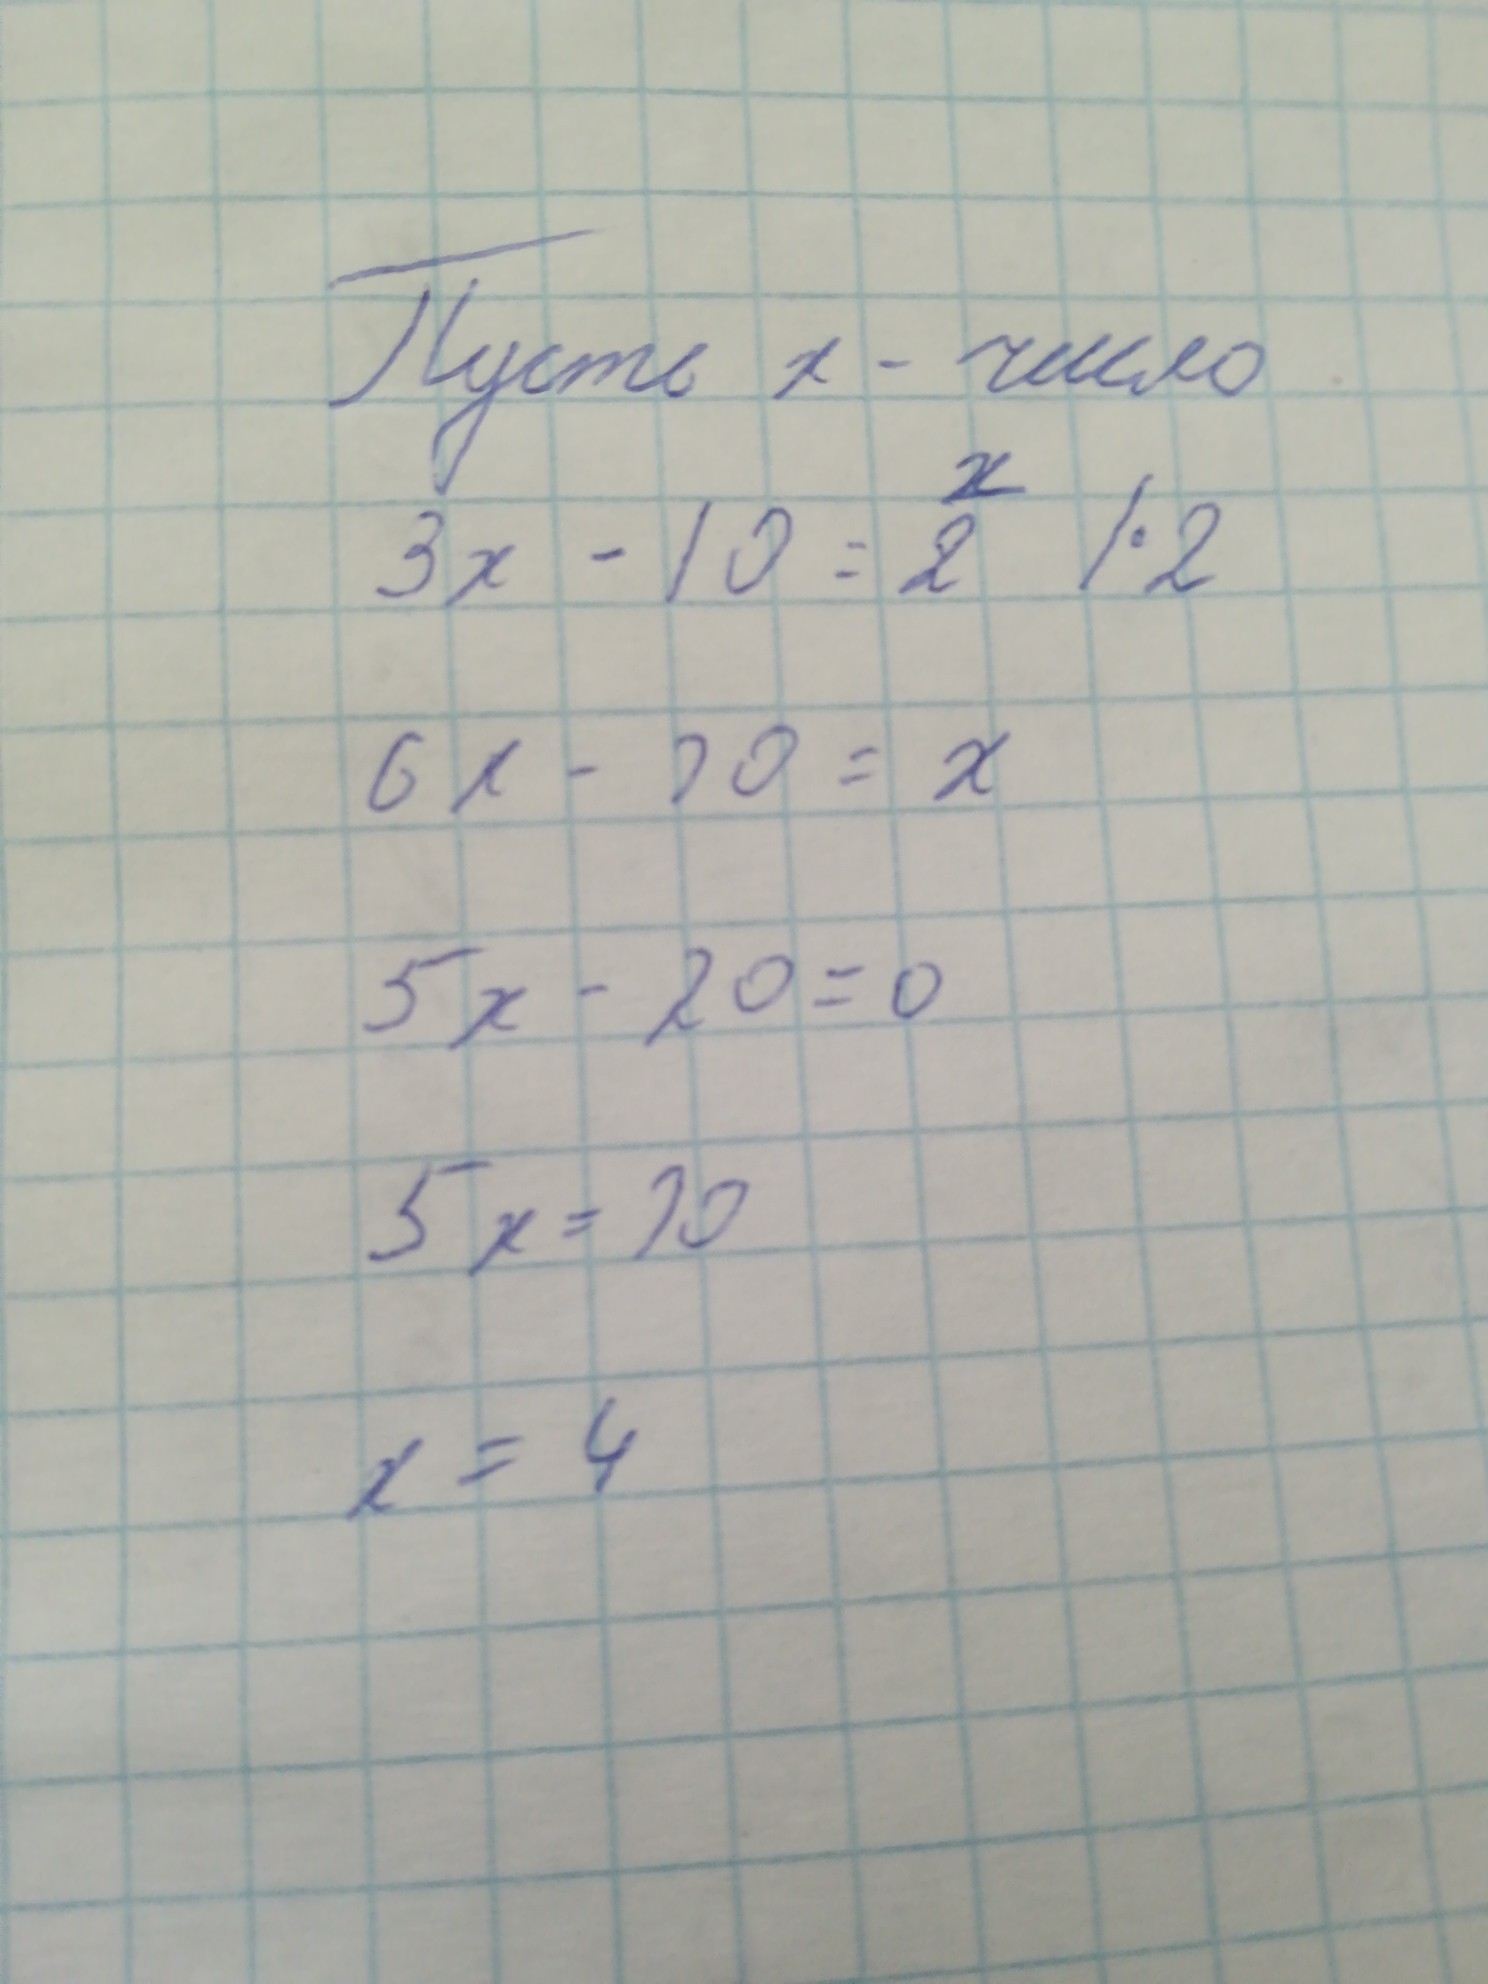 Пусть x - число
3x - 10 = x/2 |·2
6x - 20 = x
5x - 20 = 0
5x = 20
x = 4